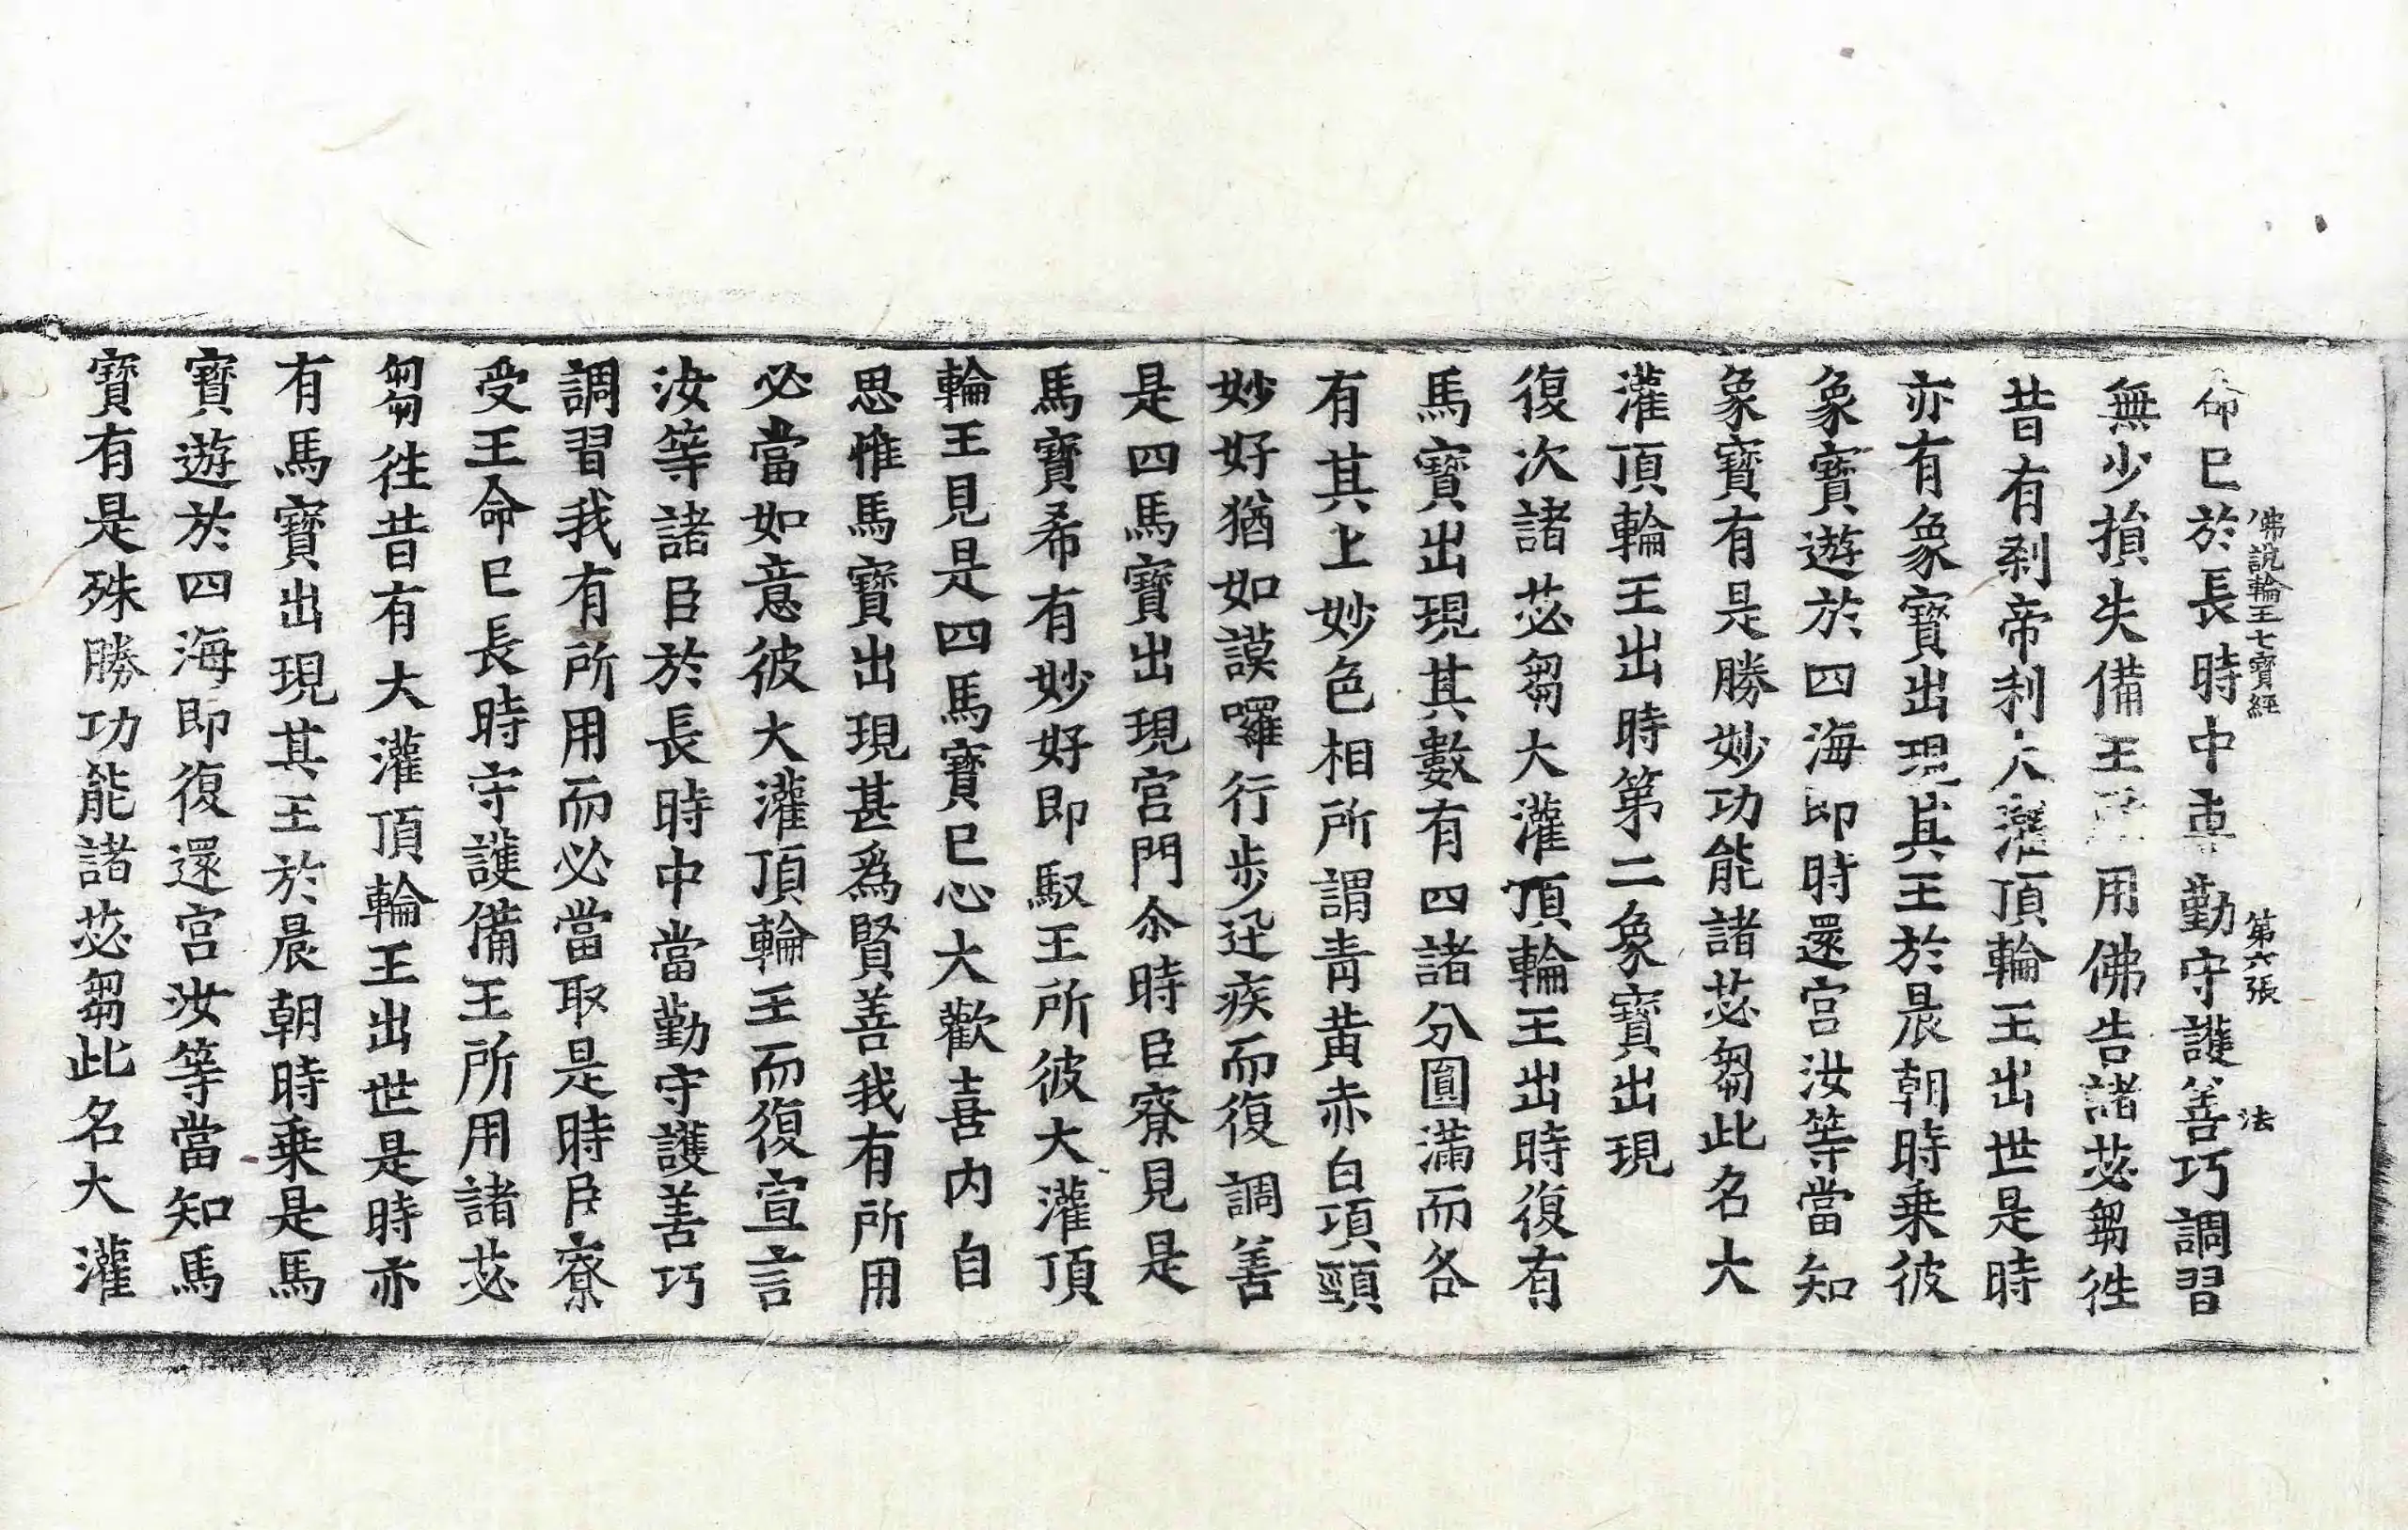 佛說輪王七寶經　第六張　法
命已於長時中專勤守護善巧調習
無少損失備王所用佛告諸苾芻徃
昔有剎帝利大灌頂輪王出世是時
亦有象寶出現其王於晨朝時乗彼
象寶遊於四海即時還宮汝等當知
象寶有是勝妙功能諸苾芻此名大
灌頂輪王出時第二象寶出現
復次諸苾芻大灌頂輪王出時復有
馬寶出現其數有四諸分圓滿而各
有其上妙色相所謂青黃赤白項頸
妙好猶如謨囉行步迅疾而復調善
是四馬寶出現宮門尒時臣寮見是
馬寶希有妙好即馭王所彼大灌頂
輪王見是四馬寶已心大歡喜内自
思惟馬寶出現甚爲賢善我有所用
必當如意彼大灌頂輪王而復宣言
汝等諸臣於長時中當勤守護善巧
調習我有所用而必當取是時臣寮
受王命已長時守護備王所用諸苾
芻徃昔有大灌頂輪王出世是時亦
有馬寶出現其王於晨朝時乗是馬
寶遊於四海即復還宮汝等當知馬
寶有是殊勝功能諸苾芻此名大灌